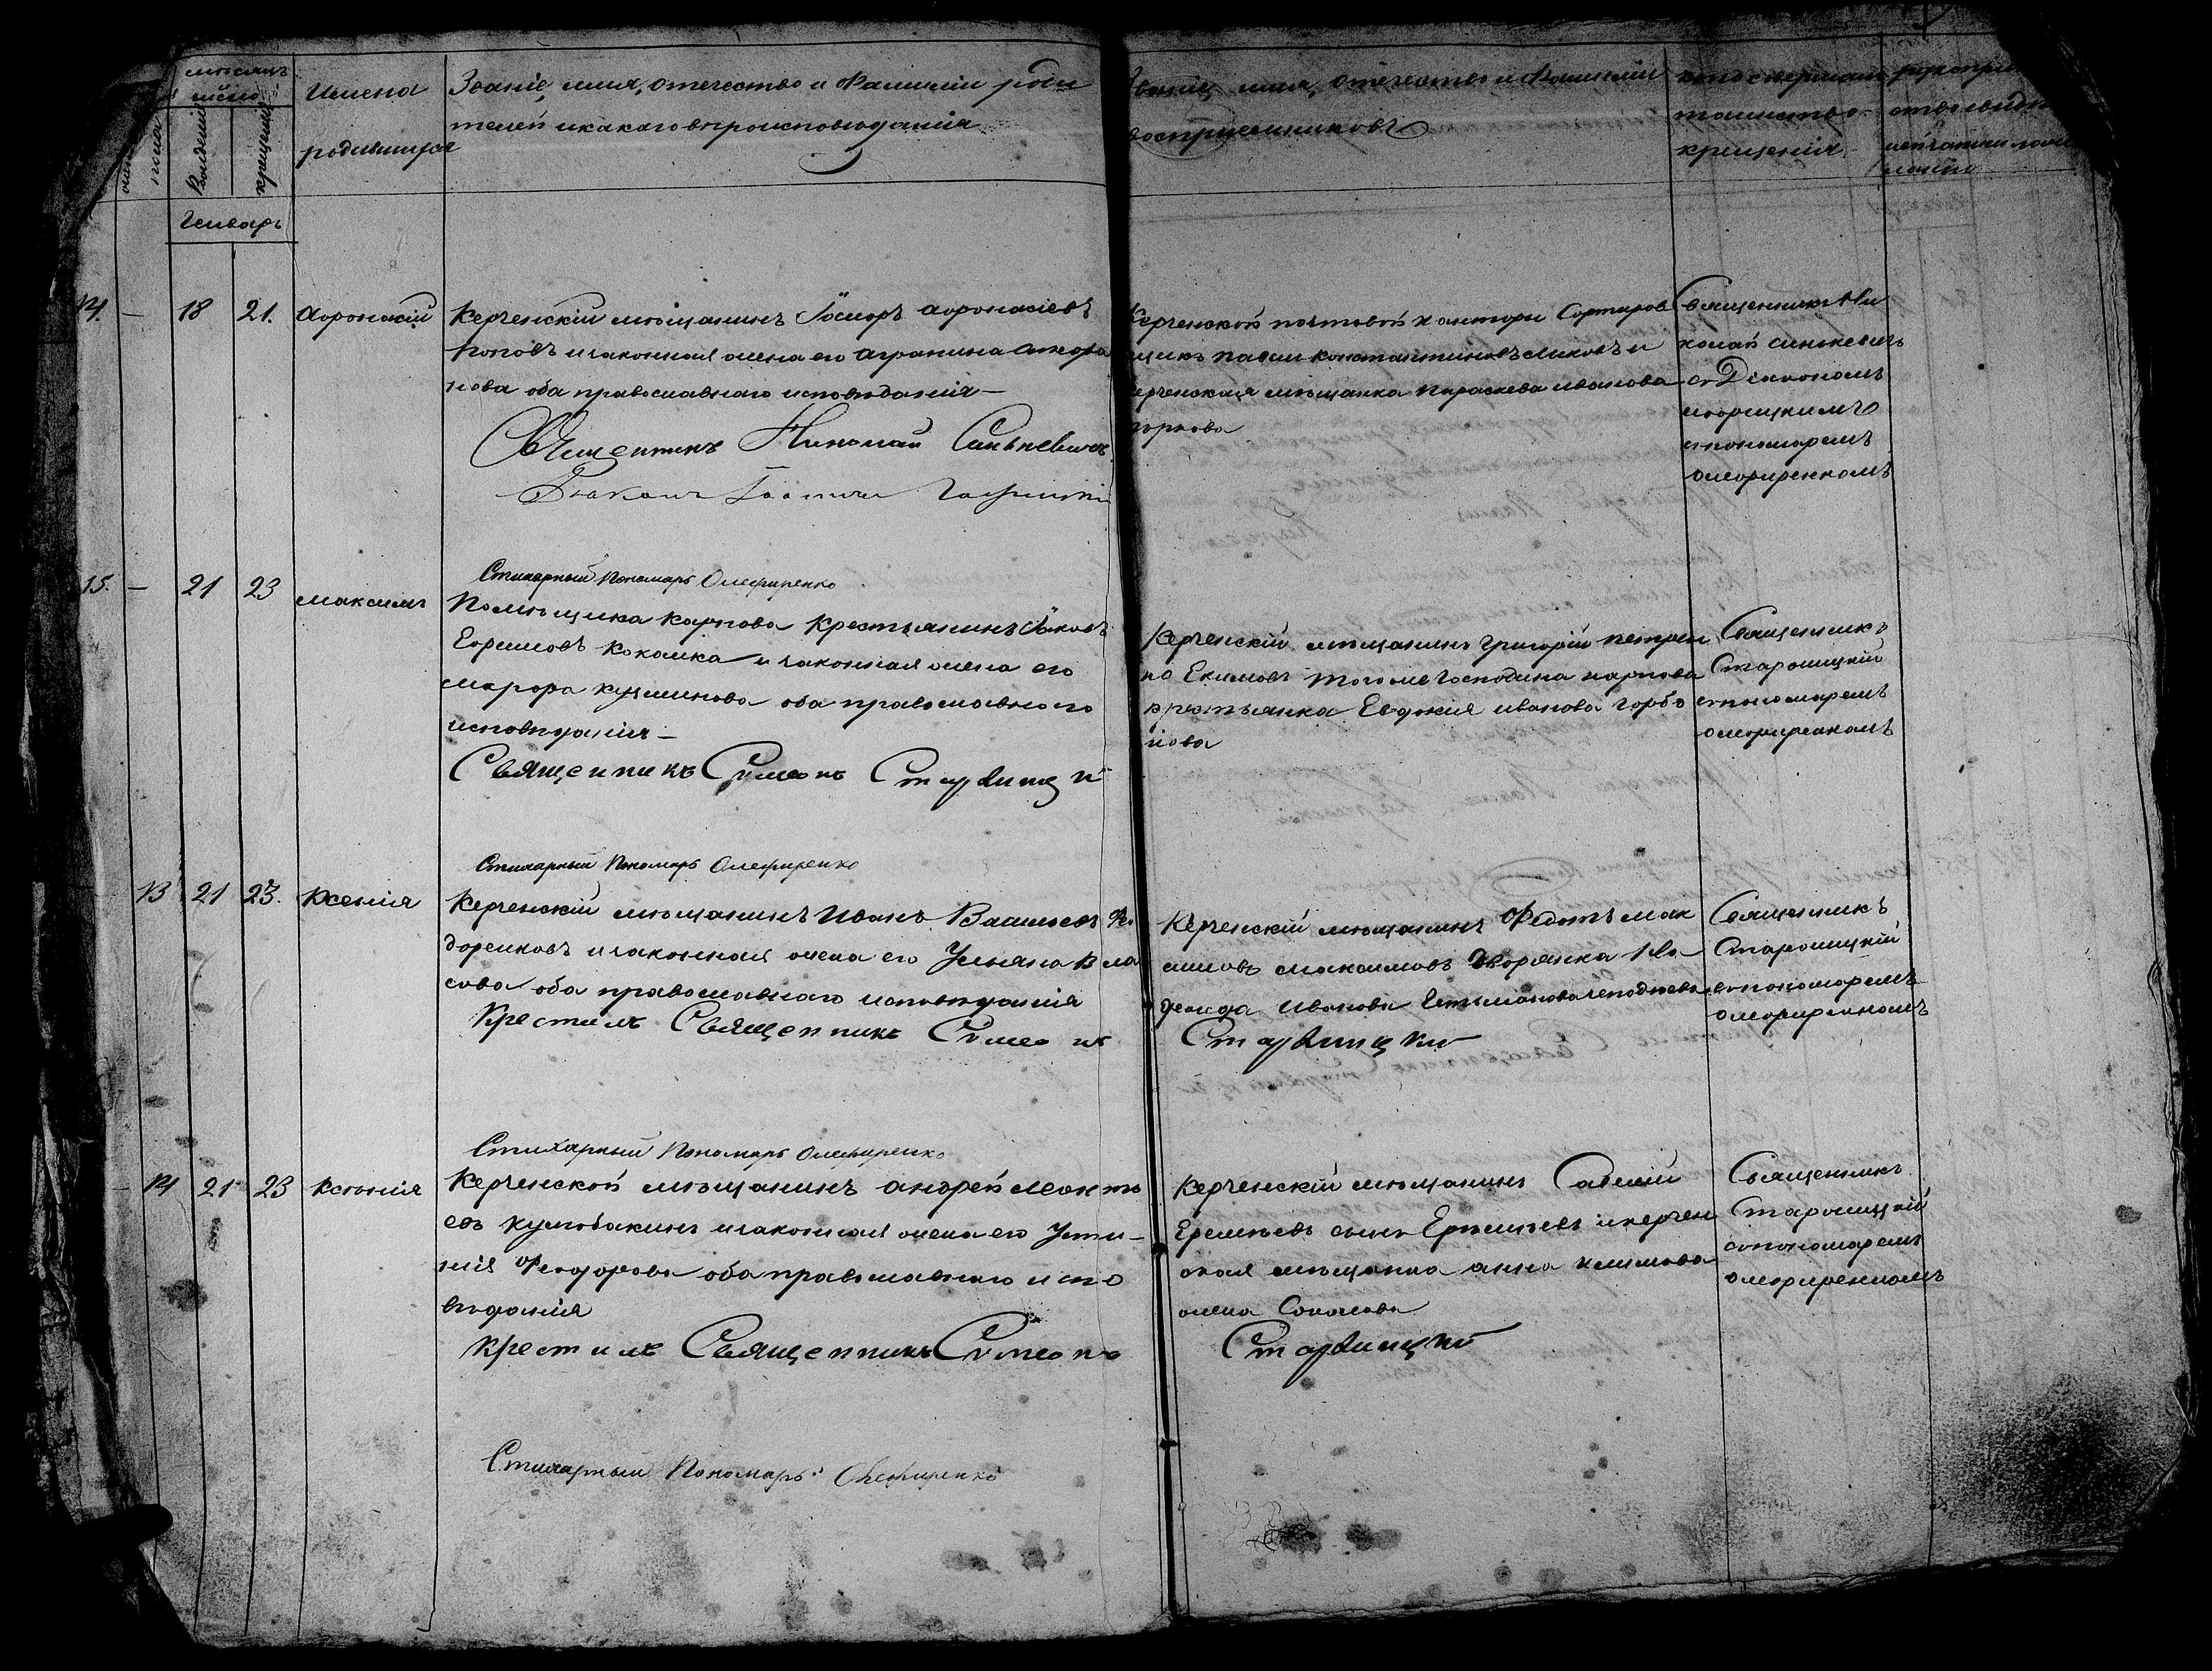 мѣсяцъ
число
Имена
родившихся
Званіе, имя, отечество и Фамиліи роди
телей и какаго вѣроисповѣданія
Званіе, имя, отечество и Фамиліи
воспріемниковъ
кто совершалъ
таинство
крещенія
рукопри
Январь
14. — 18 21. Афонасій
Керченскій мѣщанинъ Ѳеодоръ Афонасіевъ
Поповъ и законная жена его Агрипина
нова оба православнаго исповѣданія —
Священникъ Николай Синькевичъ
Діаконъ Іоаннъ
Керченской почтовой конторы Сортиров
щикъ Павелъ Константиновъ и
Керченская мѣщанка Параскева Иванова
Священникъ Ни
колай Синькевичъ
съ Діакономъ
спономаремъ
Олефиренкомъ
Стихарный Пономарь Олефиренко
15. — 21 23 Максимъ
Помѣщика Карпова Крестьянинъ Яковъ
Ефимовъ и законная жена его
Марфа Кузминова оба православнаго
исповѣданія —
Священникъ Симеонъ Старвицкій
Керченскій мѣщанинъ Григорій Петрен
ко Екимовъ тогоже Господина Карпова
крестьянка Евдокія Иванова Горбо
нова
Священникъ
Старвицкій
спономаремъ
Олефиренкомъ
Стихарный Пономарь Олефиренко
13 21 23. Ксенія
Керченскій мѣщанинъ Иванъ Васильевъ Ѳе
доренковъ и законная жена его Ульяна Вла
сова оба православнаго исповѣданія
Крестилъ Священникъ Симеонъ
Керченскій мѣщанинъ Федотъ Мак
симовъ Максимовъ Дворянка
Иванова
Старвицкій
Священникъ
Старвицкій
спономаремъ
Олефиренкомъ
Стихарный Пономарь Олефиренко
14 21 23 Ксенія
Керченской мѣщанинъ Андрей Леонть
евъ и законная жена его Усти-
нія Феодорова оба православнаго испо
вѣданія
Крестилъ Священникъ Симеонъ
Керченскій мѣщанинъ Савелій
Еремѣевъ сынъ и керчен
ская мѣщанка Анна Климова
жена Соколова
Старвицкій
Священникъ
Старвицкій
спономаремъ
Олефиренкомъ
Стихарный Пономарь Олефиренко